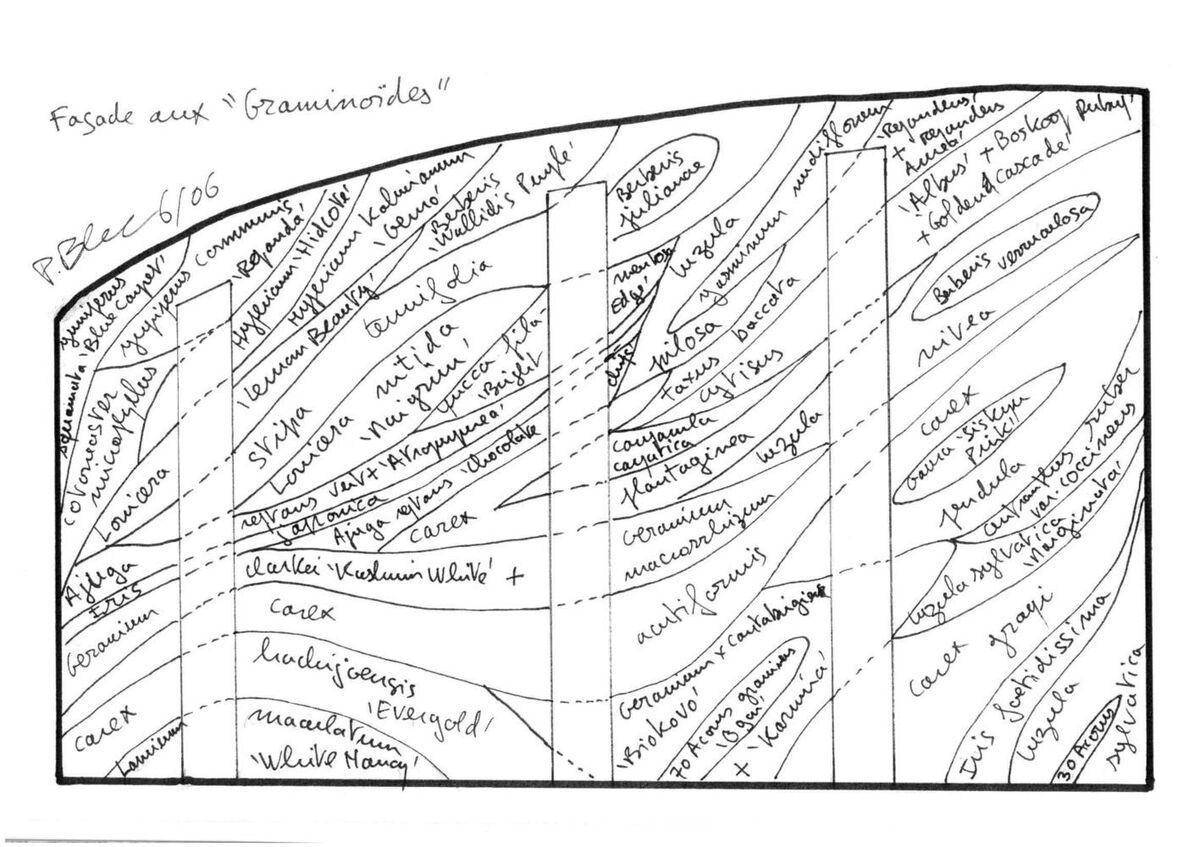 Façade aux "Graminoïdes"
P. Blec 6/06
Juniperus
squamata 'Blue Carpet'
Juniperus communis
'Repanda'
Hypericum 'Hidcote'
Hypericum Kalmianum
'Gemo'
Berberis
'Wallidis Purple'
Lonicera
'Lemon Beauty'
Cotoneaster
microphyllus
Stipa
tenuifolia
Lonicera nitida
'Maigrün'
Yucca fila-
mentosa
'Bright
Edge'
Berberis
julianae
Luzula
pilosa
Jasminum nudiflorum
Taxus baccata
'Repandens'
+ 'Repandens
Aurea'
Cytisus
'Albus' + 'Boskoop Ruby'
+ 'Golden Cascade'
Berberis verruculosa
Ajuga
reptans vert + 'Atropurpurea'
Iris
japonica
Ajuga reptans 'Chocolate
chips'
Campanula
carpatica
Carex
plantaginea
Luzula
nivea
Carex
pendula
Gaura 'Siskyu
Pink'
Centranthus ruber
var. coccineus
Luzula sylvatica
'Marginata'
Geranium
clarkei 'Kashmir White' +
Geranium
macrorrhizum
Carex
acutiformis
Carex
hachijoensis
'Evergold'
Geranium x cantabrigiense
'Biokovo'
+ 'Karmina'
70 Acorus gramineus
'Ogon'
Lamium
maculatum
'White Nancy'
Carex grayi
Iris foetidissima
Luzula
sylvatica
30 Acorus